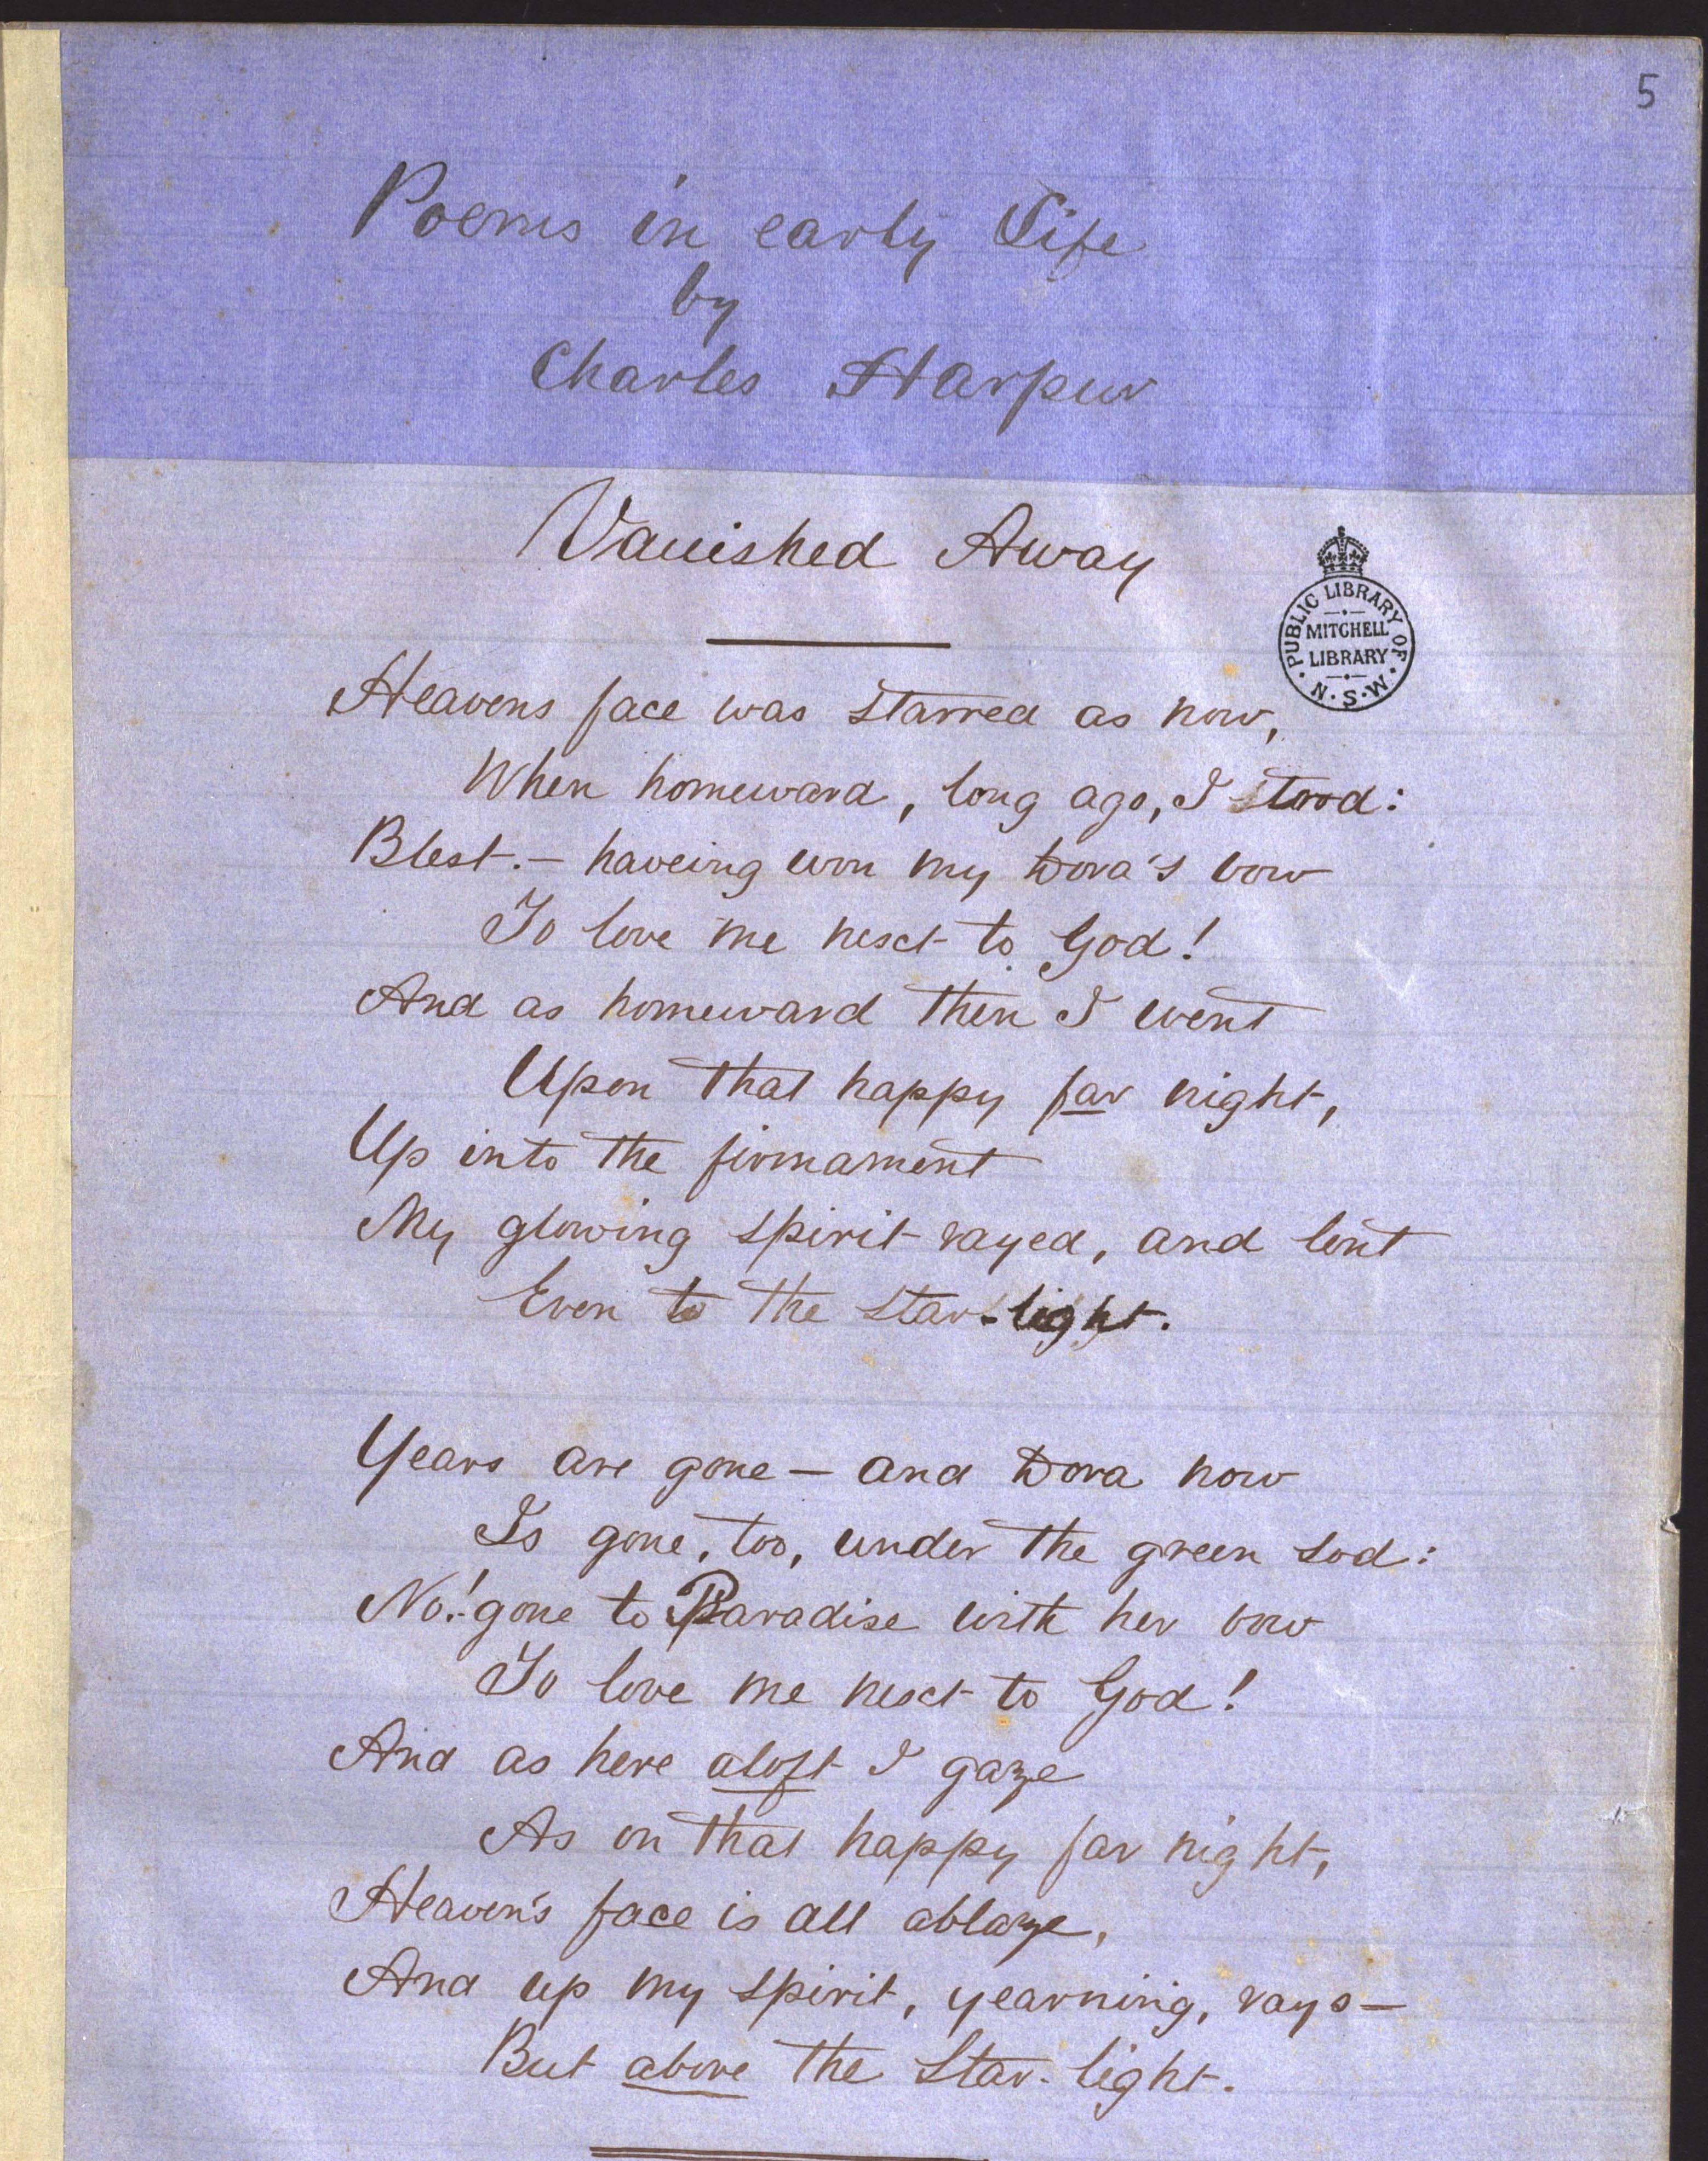 5
Poems in early Life
by
Charles Harpur
Vanished Away
PUBLIC LIBRARY OF N.S.W.
MITCHELL
LIBRARY
Heavens face was starred as now,
When homeward, long ago, I stood:
Blest. — haveing won my Dora's vow
To love me next to God!
And as homeward then I went
Upon that happy far night,
Up into the firmament
My glowing spirit rayed, and lent
Even to the star-light.
Years are gone — and Dora now
Is gone, too, under the green sod:
No! - gone to Paradise with her vow
To love me next to God!
And as here aloft I gaze
As on that happy far night,
Heaven's face is all ablaze,
And up my spirit, yearning, rays —
But above the Star-light.